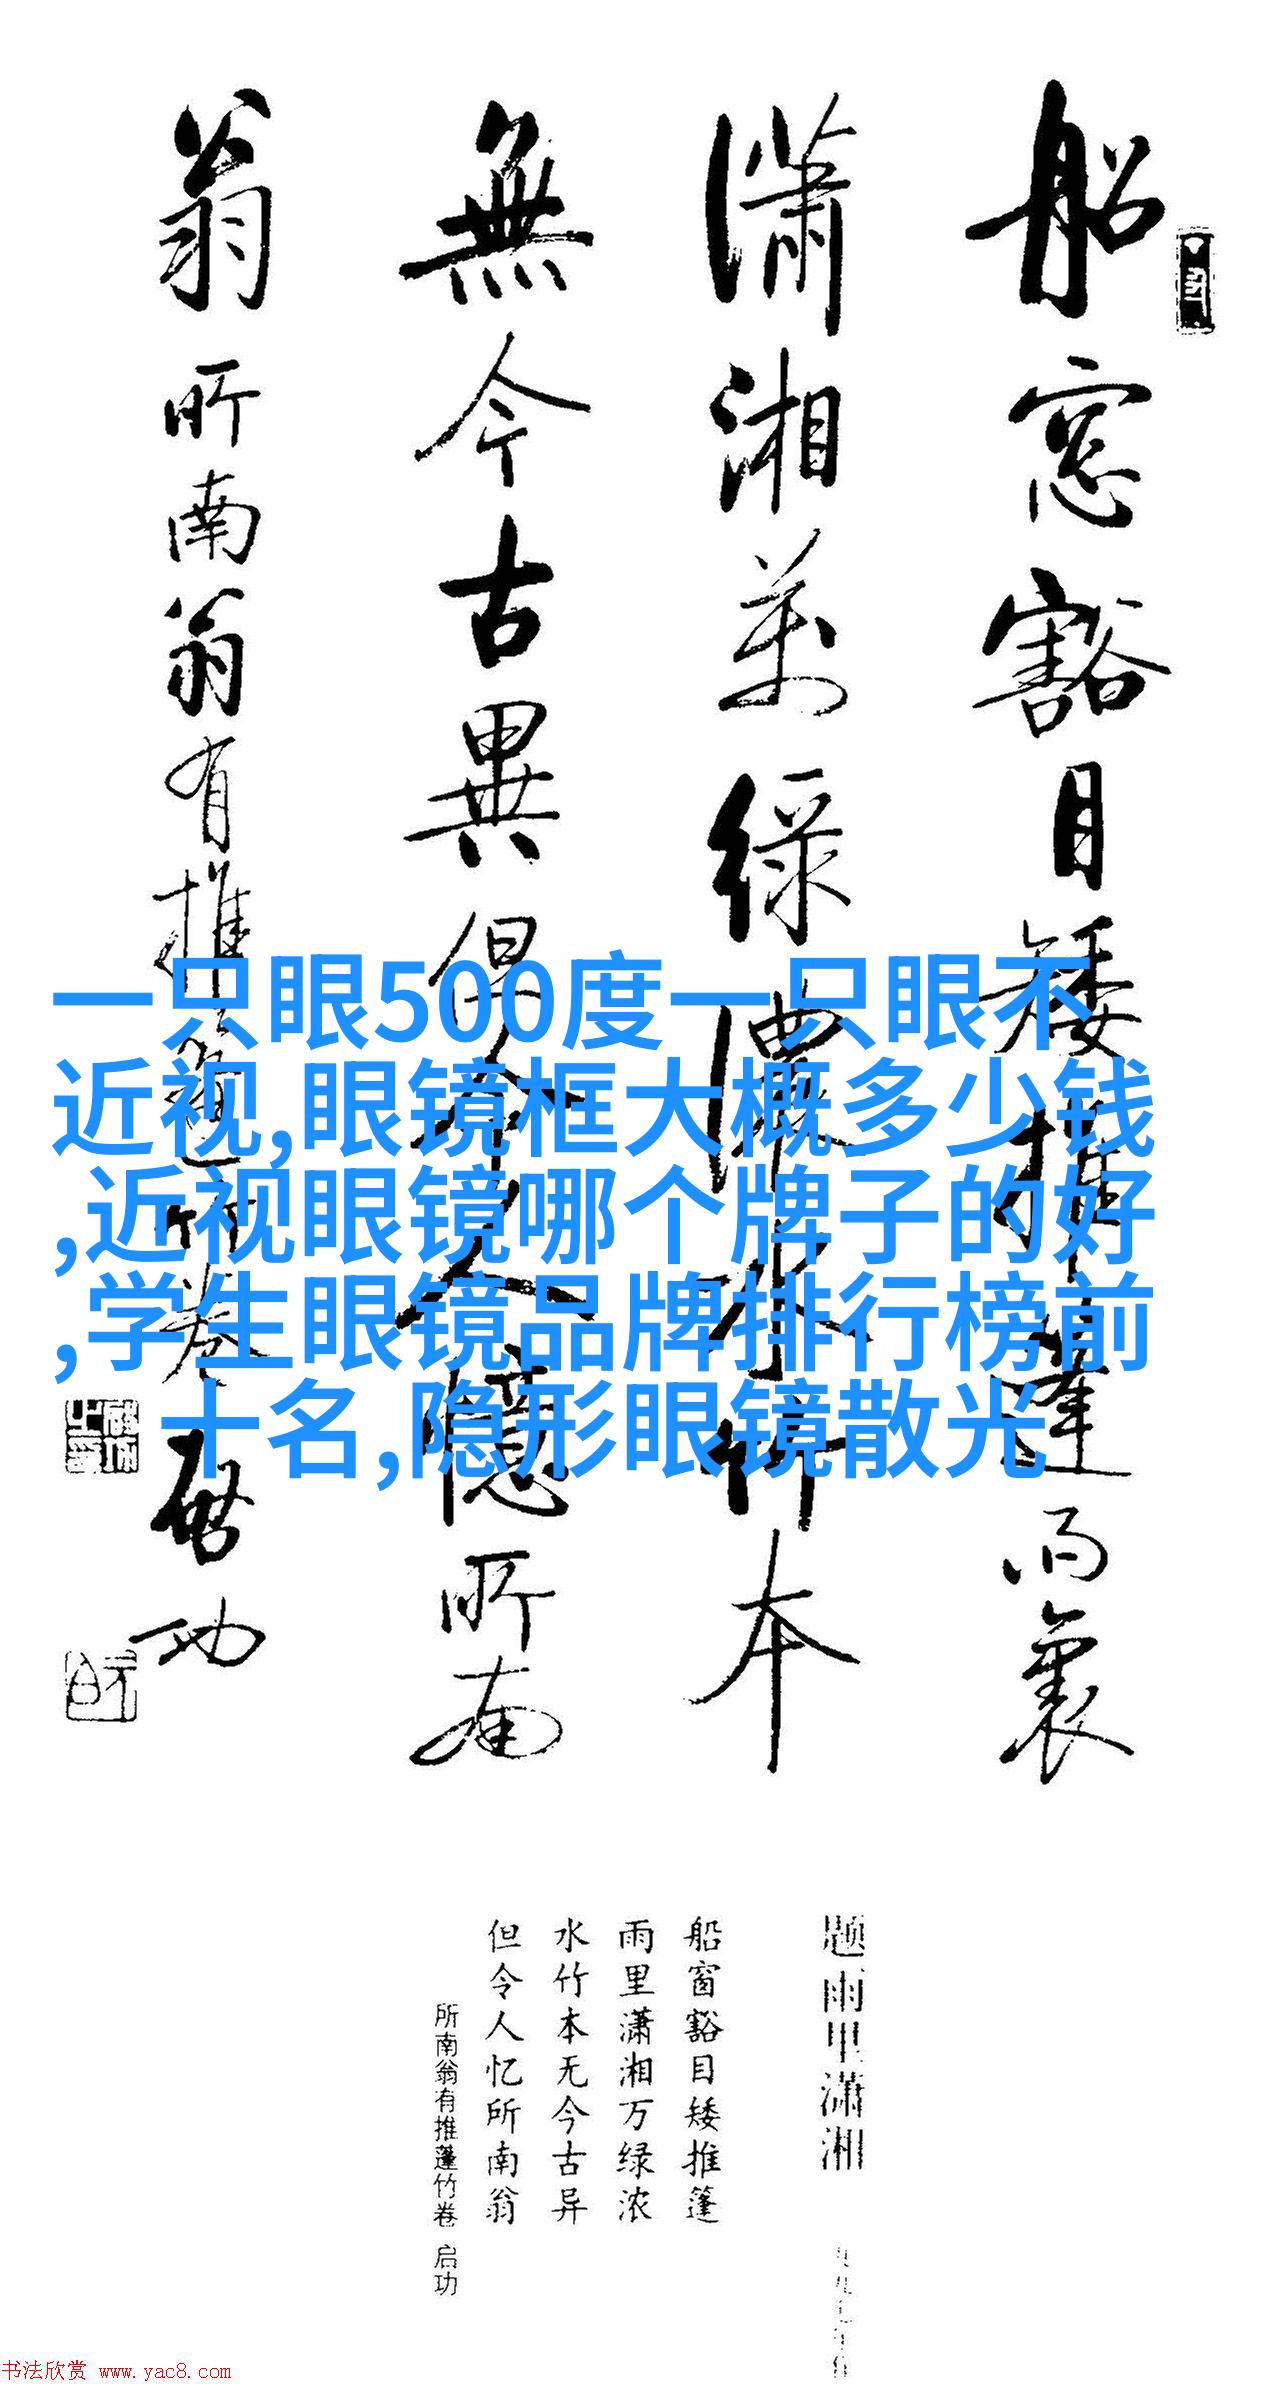 船窓豁目矮推篷雨裏
瀟湘萬綠濃水竹本
無今古異但令人憶所南
翁 所南翁有推篷竹卷 启功
一只眼500度一只眼不
近视,眼镜框大概多少钱
,近视眼镜哪个牌子的好
,学生眼镜品牌排行榜前
十名,隐形眼镜散光
题雨里潇湘
船窗豁目矮推篷
雨里潇湘万绿浓
水竹本无今古异
但令人忆所南翁
所南翁有推蓬竹卷 启功
书法欣赏 www.yac8.com